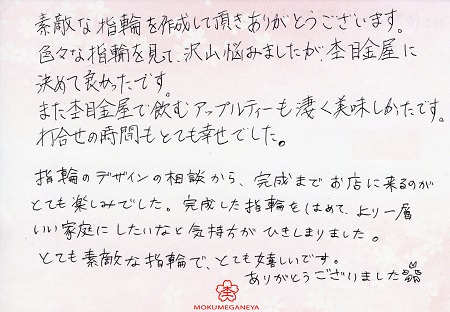 素敵な指輪を作成して頂きありがとうございます。
色々な指輪を見て、沢山悩みましたが、杢目金屋に
決めて良かったです。
また杢目金屋で飲むアップルティーも凄く美味しかったです。
打合せの時間もとても幸せでした。
指輪のデザインの相談から、完成までお店に来るのが
とても楽しみでした。完成した指輪をはめて、より一層
いい家庭にしたいなと気持ちがひきしまりました。
とても素敵な指輪で、とても嬉しいです。
ありがとうございました
MOKUMEGANEYA